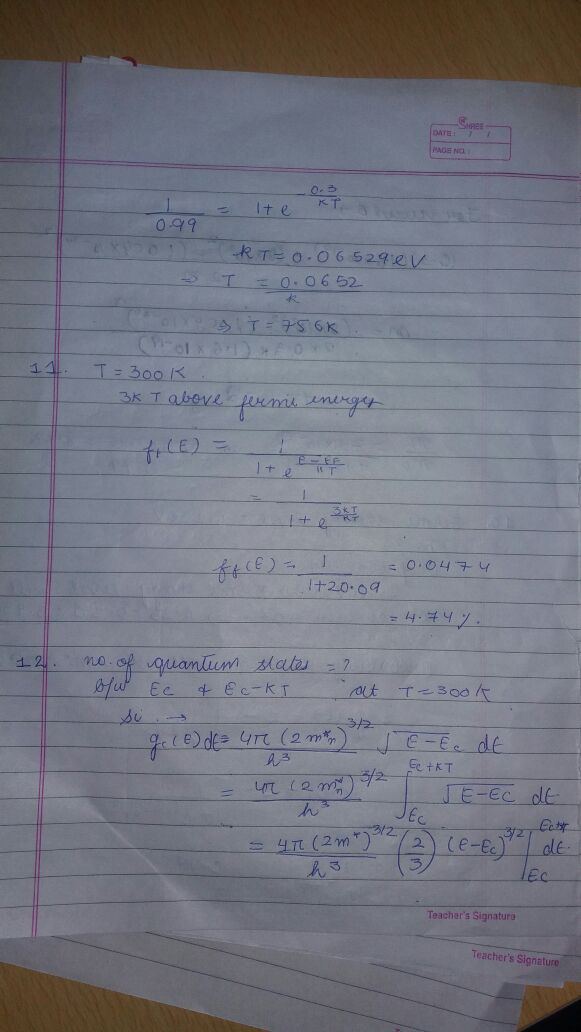 SHREE
DATE : / /
PAGE NO. :
1/0.99 = 1 + e^(-0.3/KT)
KT = 0.06529 eV
⇒ T = 0.0652/k
⇒ T = 756K.
11. T = 300K.
3KT above fermi energy
f_f(E) = 1/(1 + e^((E-EF)/KT))
= 1/(1 + e^(3KT/KT))
f_f(E) = 1/(1+20.09) = 0.0474
= 4.74%.
12. no. of quantum states = ?
b/w Ec & Ec-KT at T = 300K.
Si →
g_c(E)dt = 4π(2m*n)^3/2/h³ √E-Ec dt
= 4π(2m*n)^3/2/h³ ∫_Ec^Ec+KT √E-Ec dt
= 4π(2m*)^3/2/h³ (2/3) (E-Ec)^3/2 | dt.
Ec
Teacher's Signature
Teacher's Signature